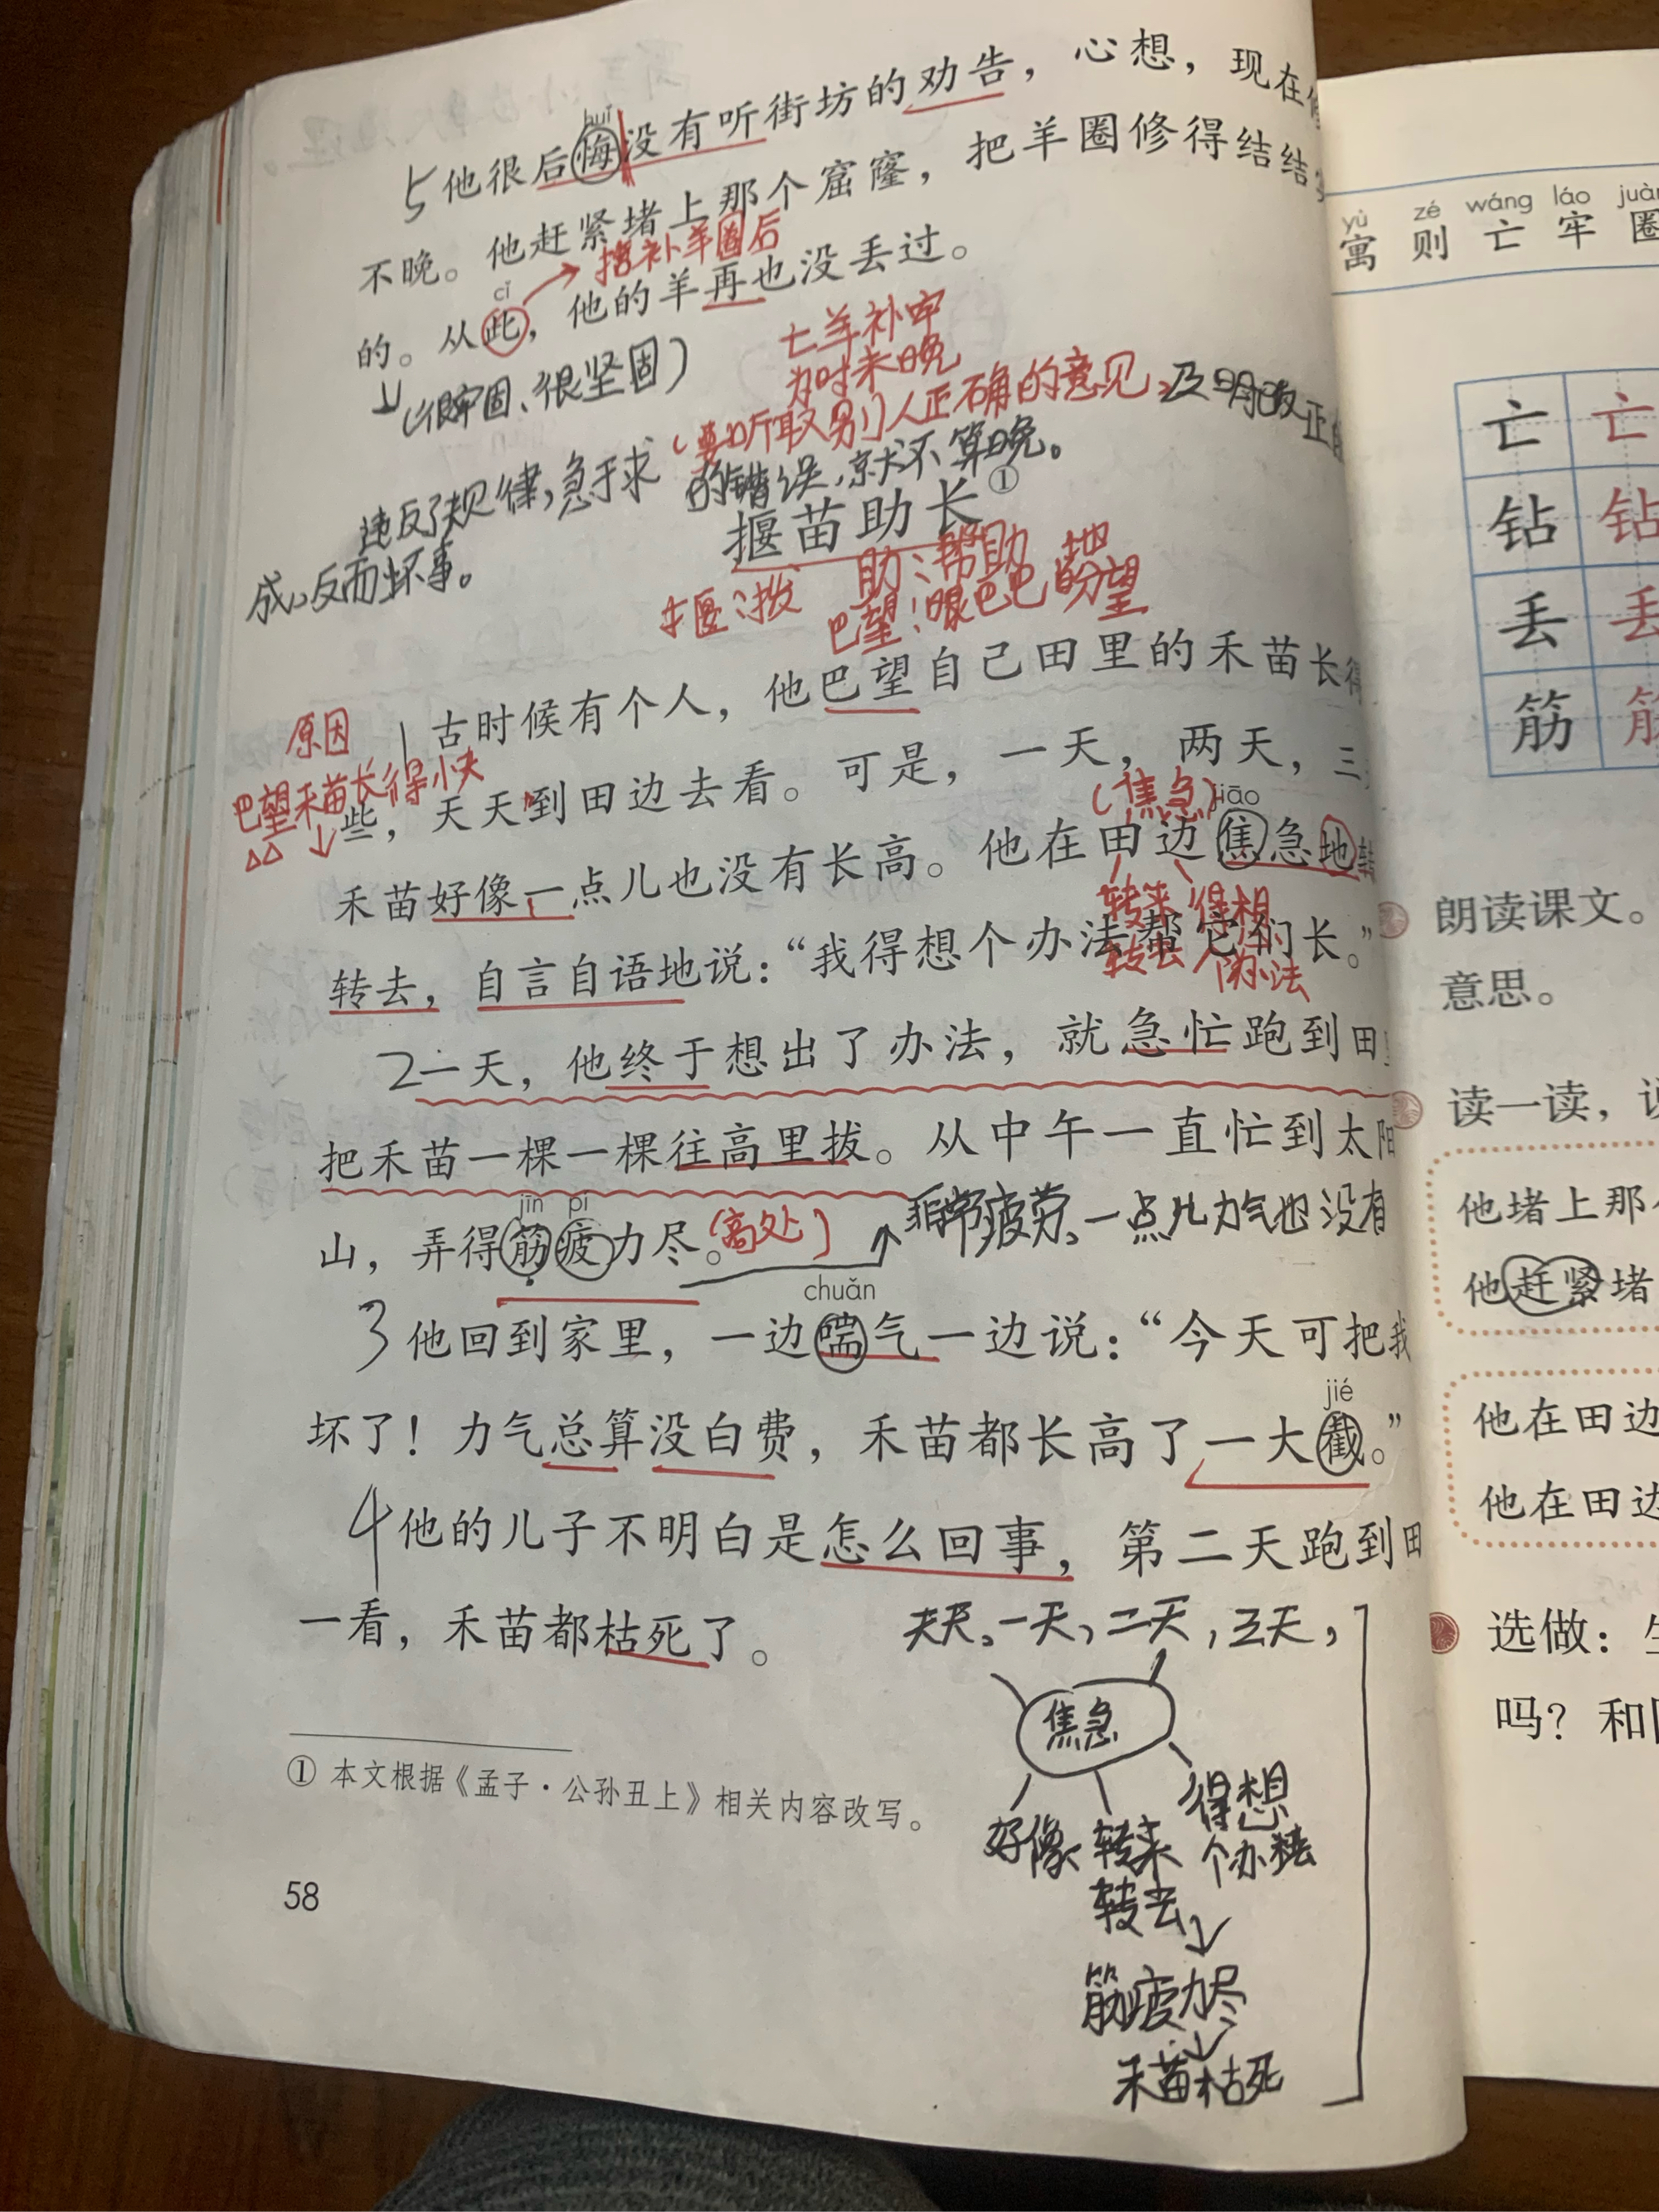 huǐ
5 他很后悔没有听街坊的劝告，心想，现在
不晚。他赶紧堵上那个窟窿，把羊圈修得结结
补羊圈后
cǐ
的。从此，他的羊再也没丢过。
(很牢固、很坚固)
亡羊补牢
为时未晚
(要听取别人正确的意见，及时改正
的错误，就不算晚。
违反了规律，急于求
成，反而坏事。
揠苗助长①
揠：拔 助：帮助
巴望：眼巴巴地盼望
原因
1 古时候有个人，他巴望自己田里的禾苗长得
巴望禾苗长得快
些，天天到田边去看。可是，一天，两天，三
(焦急) jiāo
禾苗好像一点儿也没有长高。他在田边焦急地转
转来转去 得想个办法
转去，自言自语地说：“我得想个办法帮它们长。”
2 一天，他终于想出了办法，就急忙跑到田
把禾苗一棵一棵往高里拔。从中午一直忙到太阳
jīn pí
山，弄得筋疲力尽。
(高处) 非常疲劳，一点儿力气也没有
chuǎn
3 他回到家里，一边喘气一边说：“今天可把我
jié
坏了！力气总算没白费，禾苗都长高了一大截。”
4 他的儿子不明白是怎么回事，第二天跑到田
一看，禾苗都枯死了。
天天、一天，二天，三天，
焦急
好像、转来转去 得想个办法
筋疲力尽
禾苗枯死
① 本文根据《孟子·公孙丑上》相关内容改写。
58
yù zé wáng láo juàn
寓 则 亡 牢 圈
亡 亡
钻 钻
丢 丢
筋 筋
朗读课文。
意思。
读一读，
他堵上那
他赶紧堵
他在田边
他在田边
选做：
吗？和